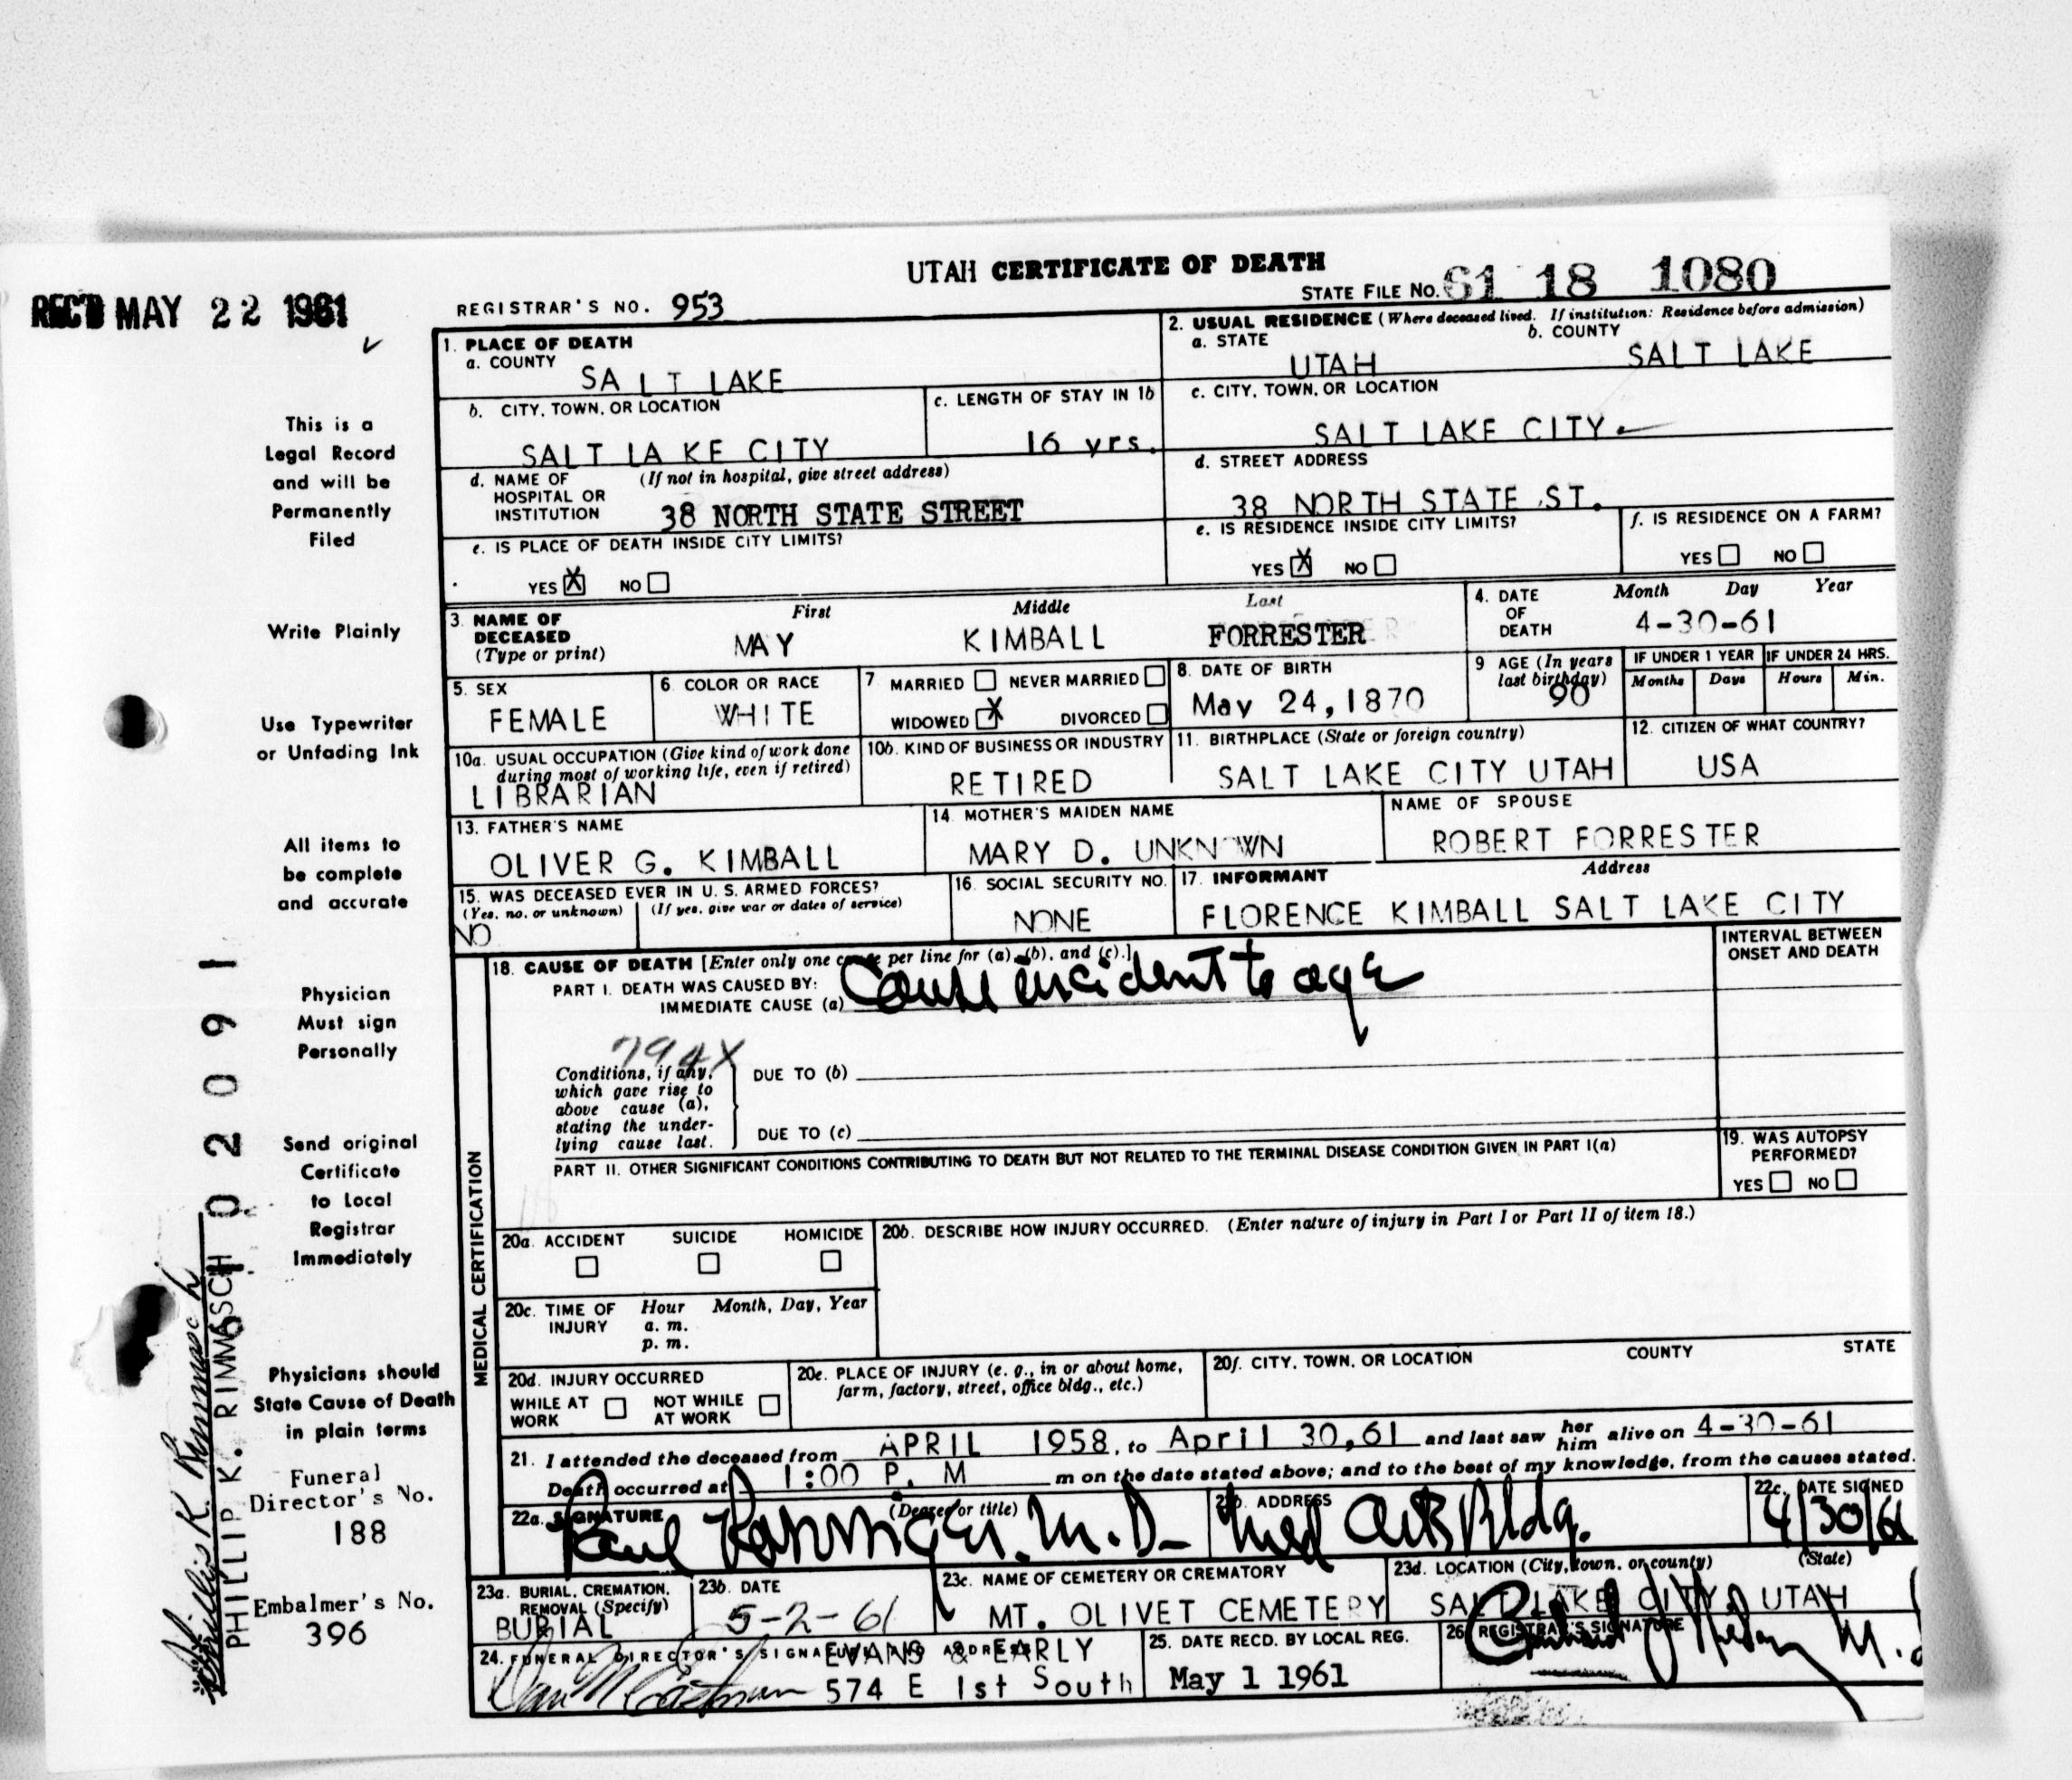 UTAH CERTIFICATE OF DEATH
REC'D MAY 22 1961
REGISTRAR'S NO. 953
STATE FILE NO. 61 18 1080
1. PLACE OF DEATH
a. COUNTY
SALT LAKE
2. USUAL RESIDENCE (Where deceased lived. If institution: Residence before admission)
a. STATE
UTAH
b. COUNTY
SALT LAKE
b. CITY, TOWN, OR LOCATION
SALT LAKE CITY
c. LENGTH OF STAY IN 1b
16 yrs.
c. CITY, TOWN, OR LOCATION
SALT LAKE CITY.
d. NAME OF HOSPITAL OR INSTITUTION
(If not in hospital, give street address)
38 NORTH STATE STREET
d. STREET ADDRESS
38 NORTH STATE ST.
e. IS PLACE OF DEATH INSIDE CITY LIMITS?
YES X NO
e. IS RESIDENCE INSIDE CITY LIMITS?
YES X NO
f. IS RESIDENCE ON A FARM?
YES NO
3. NAME OF DECEASED
(Type or print)
First Middle Last
MAY KIMBALL FORRESTER
4. DATE OF DEATH
Month Day Year
4-30-61
5. SEX
FEMALE
6. COLOR OR RACE
WHITE
7 MARRIED NEVER MARRIED
WIDOWED X DIVORCED
8. DATE OF BIRTH
May 24, 1870
9 AGE (In years last birthday)
90
IF UNDER 1 YEAR
Months Days
IF UNDER 24 HRS.
Hours Min.
10a. USUAL OCCUPATION (Give kind of work done during most of working life, even if retired)
LIBRARIAN
10b. KIND OF BUSINESS OR INDUSTRY
RETIRED
11. BIRTHPLACE (State or foreign country)
SALT LAKE CITY UTAH
12. CITIZEN OF WHAT COUNTRY?
USA
13. FATHER'S NAME
OLIVER G. KIMBALL
14. MOTHER'S MAIDEN NAME
MARY D. UNKNOWN
NAME OF SPOUSE
ROBERT FORRESTER
15. WAS DECEASED EVER IN U. S. ARMED FORCES?
(Yes, no, or unknown) (If yes, give war or dates of service)
NO
16. SOCIAL SECURITY NO.
NONE
17. INFORMANT Address
FLORENCE KIMBALL SALT LAKE CITY
MEDICAL CERTIFICATION
18. CAUSE OF DEATH [Enter only one cause per line for (a), (b), and (c).]
PART I. DEATH WAS CAUSED BY:
IMMEDIATE CAUSE (a) Cause incident to age
INTERVAL BETWEEN ONSET AND DEATH
794X
Conditions, if any, which gave rise to above cause (a), stating the underlying cause last.
DUE TO (b)
DUE TO (c)
PART II. OTHER SIGNIFICANT CONDITIONS CONTRIBUTING TO DEATH BUT NOT RELATED TO THE TERMINAL DISEASE CONDITION GIVEN IN PART I(a)
19. WAS AUTOPSY PERFORMED?
YES NO
20a. ACCIDENT SUICIDE HOMICIDE
20b. DESCRIBE HOW INJURY OCCURRED. (Enter nature of injury in Part I or Part II of item 18.)
20c. TIME OF INJURY Hour Month, Day, Year
a. m.
p. m.
20d. INJURY OCCURRED
WHILE AT WORK NOT WHILE AT WORK
20e. PLACE OF INJURY (e. g., in or about home, farm, factory, street, office bldg., etc.)
20f. CITY, TOWN, OR LOCATION COUNTY STATE
21. I attended the deceased from APRIL 1958, to April 30, 61 and last saw her him alive on 4-30-61
Death occurred at 1:00 P. M m on the date stated above; and to the best of my knowledge, from the causes stated.
22a. SIGNATURE (Degree or title)
Paul M.D.
22b. ADDRESS
Med Arts Bldg.
22c. DATE SIGNED
4/30/61
23a. BURIAL, CREMATION, REMOVAL (Specify)
BURIAL
23b. DATE
5-2-61
23c. NAME OF CEMETERY OR CREMATORY
MT. OLIVET CEMETERY
23d. LOCATION (City, town, or county) (State)
SALT LAKE CITY UTAH
24. FUNERAL DIRECTOR'S SIGNATURE AND ADDRESS
EVANS & EARLY
574 E 1st South
25. DATE RECD. BY LOCAL REG.
May 1 1961
26. REGISTRAR'S SIGNATURE
M.
This is a
Legal Record
and will be
Permanently
Filed
Write Plainly
Use Typewriter
or Unfading Ink
All items to
be complete
and accurate
Physician
Must sign
Personally
Send original
Certificate
to Local
Registrar
Immediately
Physicians should
State Cause of Death
in plain terms
Funeral
Director's No.
188
Embalmer's No.
396
Phillip K. Rimmasch
PHILLIP K. RIMMASCH
02091